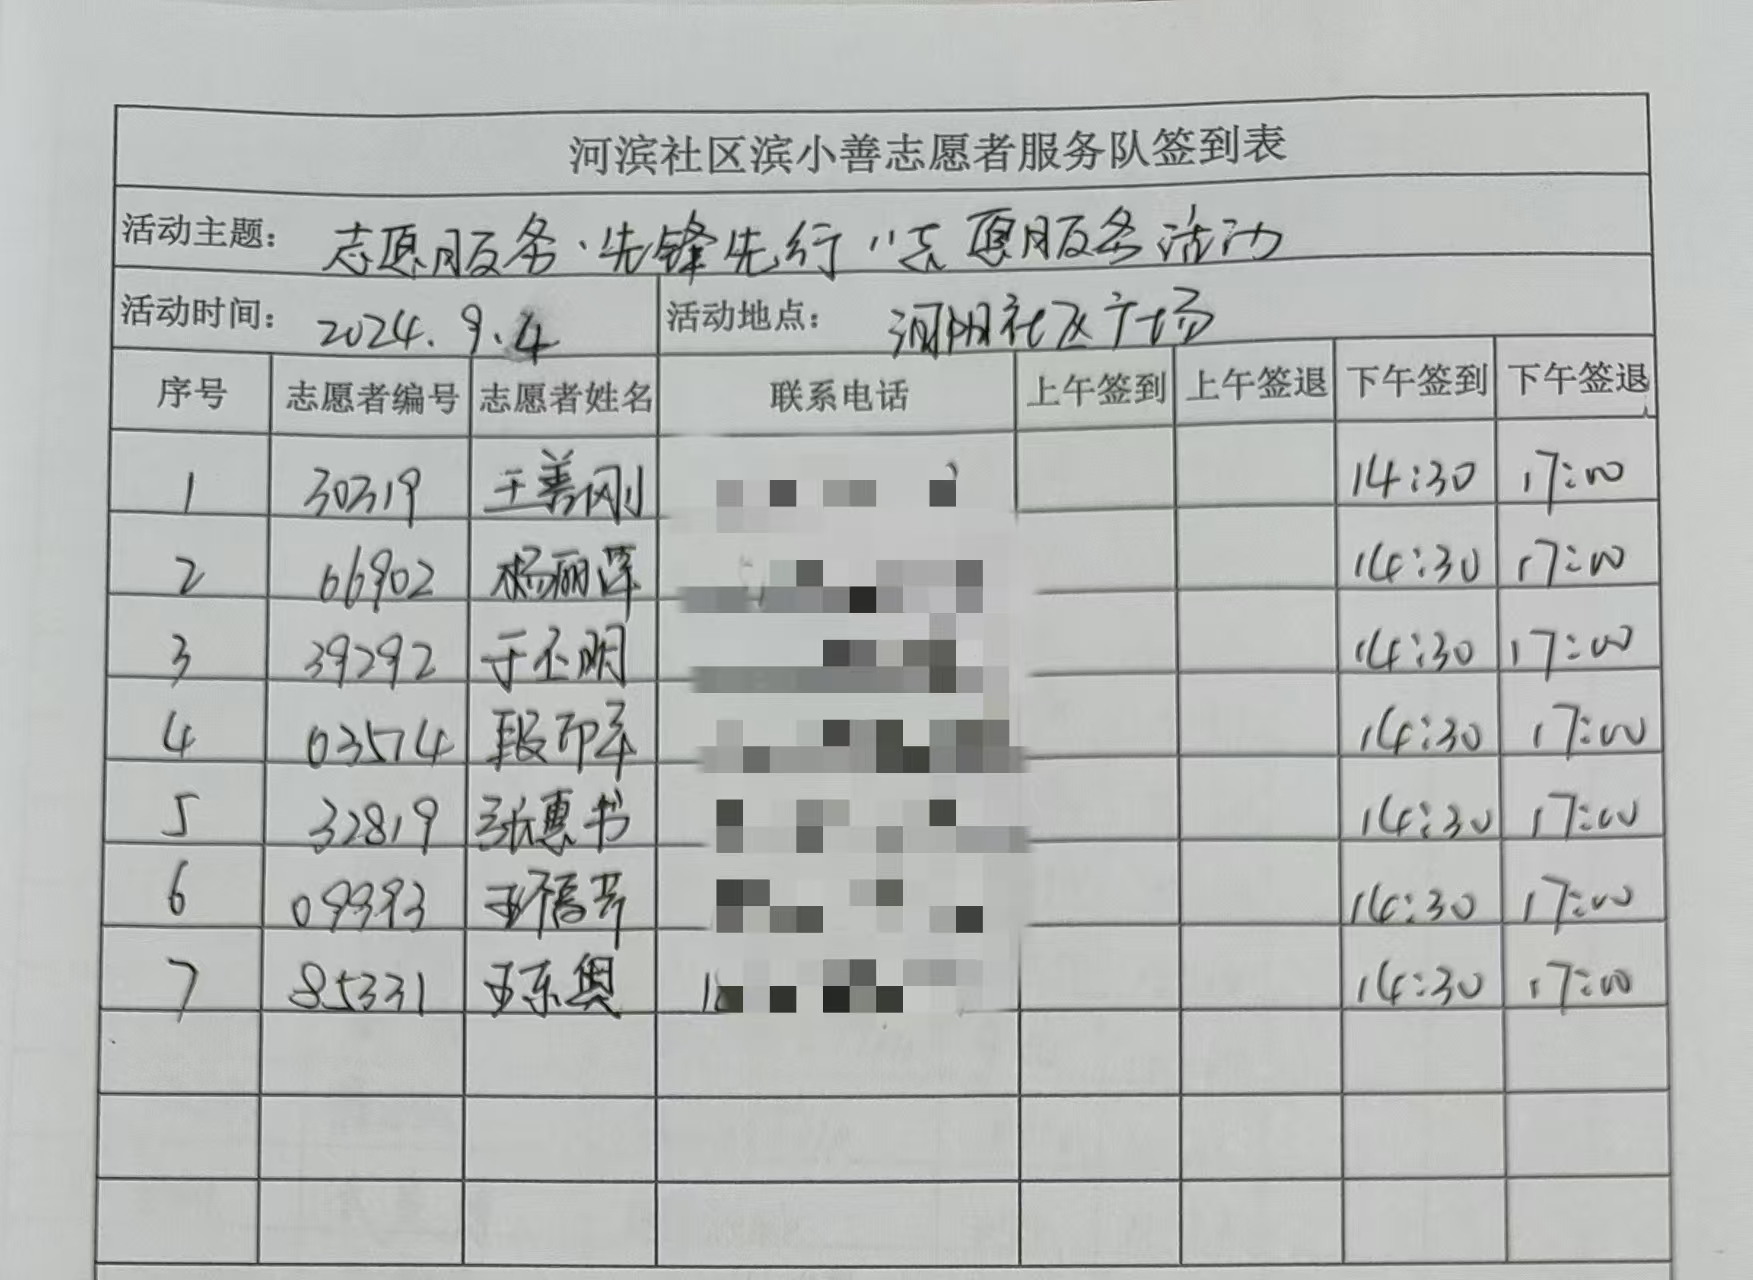 河滨社区滨小善志愿者服务队签到表
活动主题： 志愿服务·先锋先行"志愿服务活动
活动时间： 2024.9.4 活动地点： 河阴社区广场
序号 志愿者编号 志愿者姓名 联系电话 上午签到 上午签退 下午签到 下午签退
1 30319 王善刚 14:30 17:00
2 66902 杨丽萍 14:30 17:00
3 39292 于丕明 14:30 17:00
4 03574 段印军 14:30 17:00
5 32819 张惠书 14:30 17:00
6 09393 14:30 17:00
7 85331 王东奥 14:30 17:00